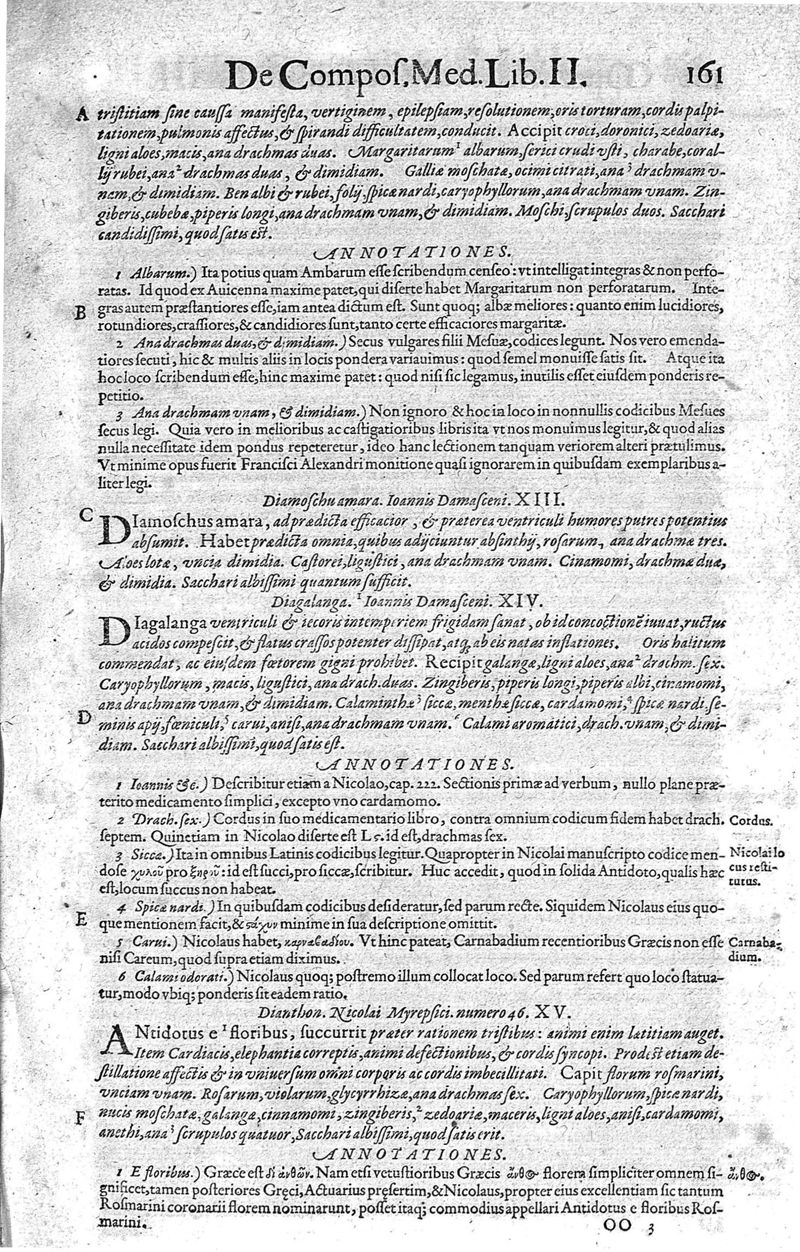 De Compos. Med. Lib. II. 161
A tristitiam sine caussa manifesta, vertiginem, epilepsiam, resolutionem, oris torturam, cordis palpi-
tationem, pulmonis affectus, & spirandi difficultatem, conducit. Accipit croci, doronici, zedoariæ,
ligni aloes, macis, ana drachmas duas. Margaritarum¹ albarum, serici crudi vsti, charabe, coral-
lij rubei, ana² drachmas duas, & dimidiam. Galliæ moschatæ, ocimi citrati, ana³ drachmam v-
nam, & dimidiam. Ben albi & rubei, folij, spicæ nardi, caryophyllorum, ana drachmam vnam. Zin-
giberis, cubebæ, piperis longi, ana drachmam vnam, & dimidiam. Moschi, scrupulos duos. Sacchari
candidissimi, quod satis est.
ANNOTATIONES.
1 Albarum.) Ita potius quam Ambarum esse scribendum censeo: vt intelligat integras & non perfo-
ratas. Id quod ex Auicenna maxime patet, qui diserte habet Margaritarum non perforatarum. Inte-
B gras autem præstantiores esse, iam antea dictum est. Sunt quoq; albæ meliores: quanto enim lucidiores,
rotundiores, crassiores, & candidiores sunt, tanto certe efficaciores margaritæ.
2 Ana drachmas duas, & dimidiam.) Secus vulgares filii Mesuæ, codices legunt. Nos vero emenda-
tiores secuti, hic & multis aliis in locis pondera variauimus: quod semel monuisse satis sit. Atque ita
hoc loco scribendum esse, hinc maxime patet: quod nisi sic legamus, inutilis esset eiusdem ponderis re-
petitio.
3 Ana drachmam vnam, & dimidiam.) Non ignoro & hoc in loco in nonnullis codicibus Mesues
secus legi. Quia vero in melioribus ac castigatioribus libris ita vt nos monuimus legitur, & quod alias
nulla necessitate idem pondus repeteretur, ideo hanc lectionem tanquam veriorem alteri prætulimus.
Vt minime opus fuerit Francisci Alexandri monitione quasi ignorarem in quibusdam exemplaribus a-
liter legi.
Diamoschu amara. Ioannis Damasceni. XIII.
C DIamoschus amara, ad prædicta efficacior, & præterea ventriculi humores putres potentius
absumit. Habet prædicta omnia, quibus adijciuntur absinthij, rosarum, ana drachmæ tres.
Aloes lotæ, vncia dimidia. Castorei, ligustici, ana drachmam vnam. Cinamomi, drachmæ duæ,
& dimidia. Sacchari albissimi quantum sufficit.
Diagalanga. ¹Ioannis Damasceni. XIV.
DIagalanga ventriculi & iecoris intemperiem frigidam sanat, ob id concoctionē iuuat, ructus
acidos compescit, & flatus crassos potenter dissipat, atq; ab eis natas inflationes. Oris halitum
commendat, ac eiusdem fœtorem gigni prohibet. Recipit galangæ, ligni aloes, ana² drachm. sex.
Caryophyllorum, macis, ligustici, ana drach. duas. Zingiberis, piperis longi, piperis albi, cinamomi,
ana drachmam vnam, & dimidiam. Calaminthæ³ siccæ, menthæ siccæ, cardamomi,⁴ spicæ nardi, se-
D minis apij, fœniculi,⁵ carui, anisi, ana drachmam vnam.⁶ Calami aromatici, drach. vnam, & dimi-
diam. Sacchari albissimi, quod satis est.
ANNOTATIONES.
1 Ioannis &c.) Describitur etiam a Nicolao, cap. 222. Sectionis primæ ad verbum, nullo plane præ-
terito medicamento simplici, excepto vno cardamomo.
2 Drach. sex.) Cordus in suo medicamentario libro, contra omnium codicum fidem habet drach. Cordus.
septem. Quinetiam in Nicolao diserte est L ς. id est, drachmas sex.
3 Siccæ.) Ita in omnibus Latinis codicibus legitur. Quapropter in Nicolai manuscripto codice men- Nicolai lo
dose χυλοῦ pro ξηροῦ: id est succi, pro siccæ, scribitur. Huc accedit, quod in solida Antidoto, qualis hæc cus resti-
est, locum succus non habeat. tutus.
4 Spicæ nardi.) In quibusdam codicibus desideratur, sed parum recte. Siquidem Nicolaus eius quo-
E que mentionem facit, & στάχυν minime in sua descriptione omittit.
5 Carui.) Nicolaus habet, καρναβαδίου. Vt hinc pateat, Carnabadium recentioribus Græcis non esse Carnaba-
nisi Careum, quod supra etiam diximus. dium.
6 Calami odorati.) Nicolaus quoq; postremo illum collocat loco. Sed parum refert quo loco statua-
tur, modo vbiq; ponderis sit eadem ratio.
Dianthon. Nicolai Myrepsici. numero 46. XV.
ANtidotus e ¹floribus, succurrit præter rationem tristibus: animi enim lætitiam auget.
Item Cardiacis, elephantia correptis, animi defectionibus, & cordis syncopi. Prodest etiam de-
stillatione affectis & in vniuersum omni corporis ac cordis imbecillitati. Capit florum rosmarini,
vnciam vnam. Rosarum, violarum, glycyrrhizæ, ana drachmas sex. Caryophyllorum, spicæ nardi,
F nucis moschatæ, galangæ, cinnamomi, zingiberis,² zedoariæ, maceris, ligni aloes, anisi, cardamomi,
anethi, ana³ scrupulos quatuor, Sacchari albissimi, quod satis erit.
ANNOTATIONES.
1 E floribus.) Græce est δι᾽ ἀνθῶν. Nam etsi vetustioribus Græcis ἄνθος florem simpliciter omnem si- ἄνθος.
gnificet, tamen posteriores Gręci, Actuarius pręsertim, & Nicolaus, propter eius excellentiam sic tantum
Rosmarini coronarii florem nominarunt, posset itaq; commodius appellari Antidotus e floribus Ros-
marini.
OO 3